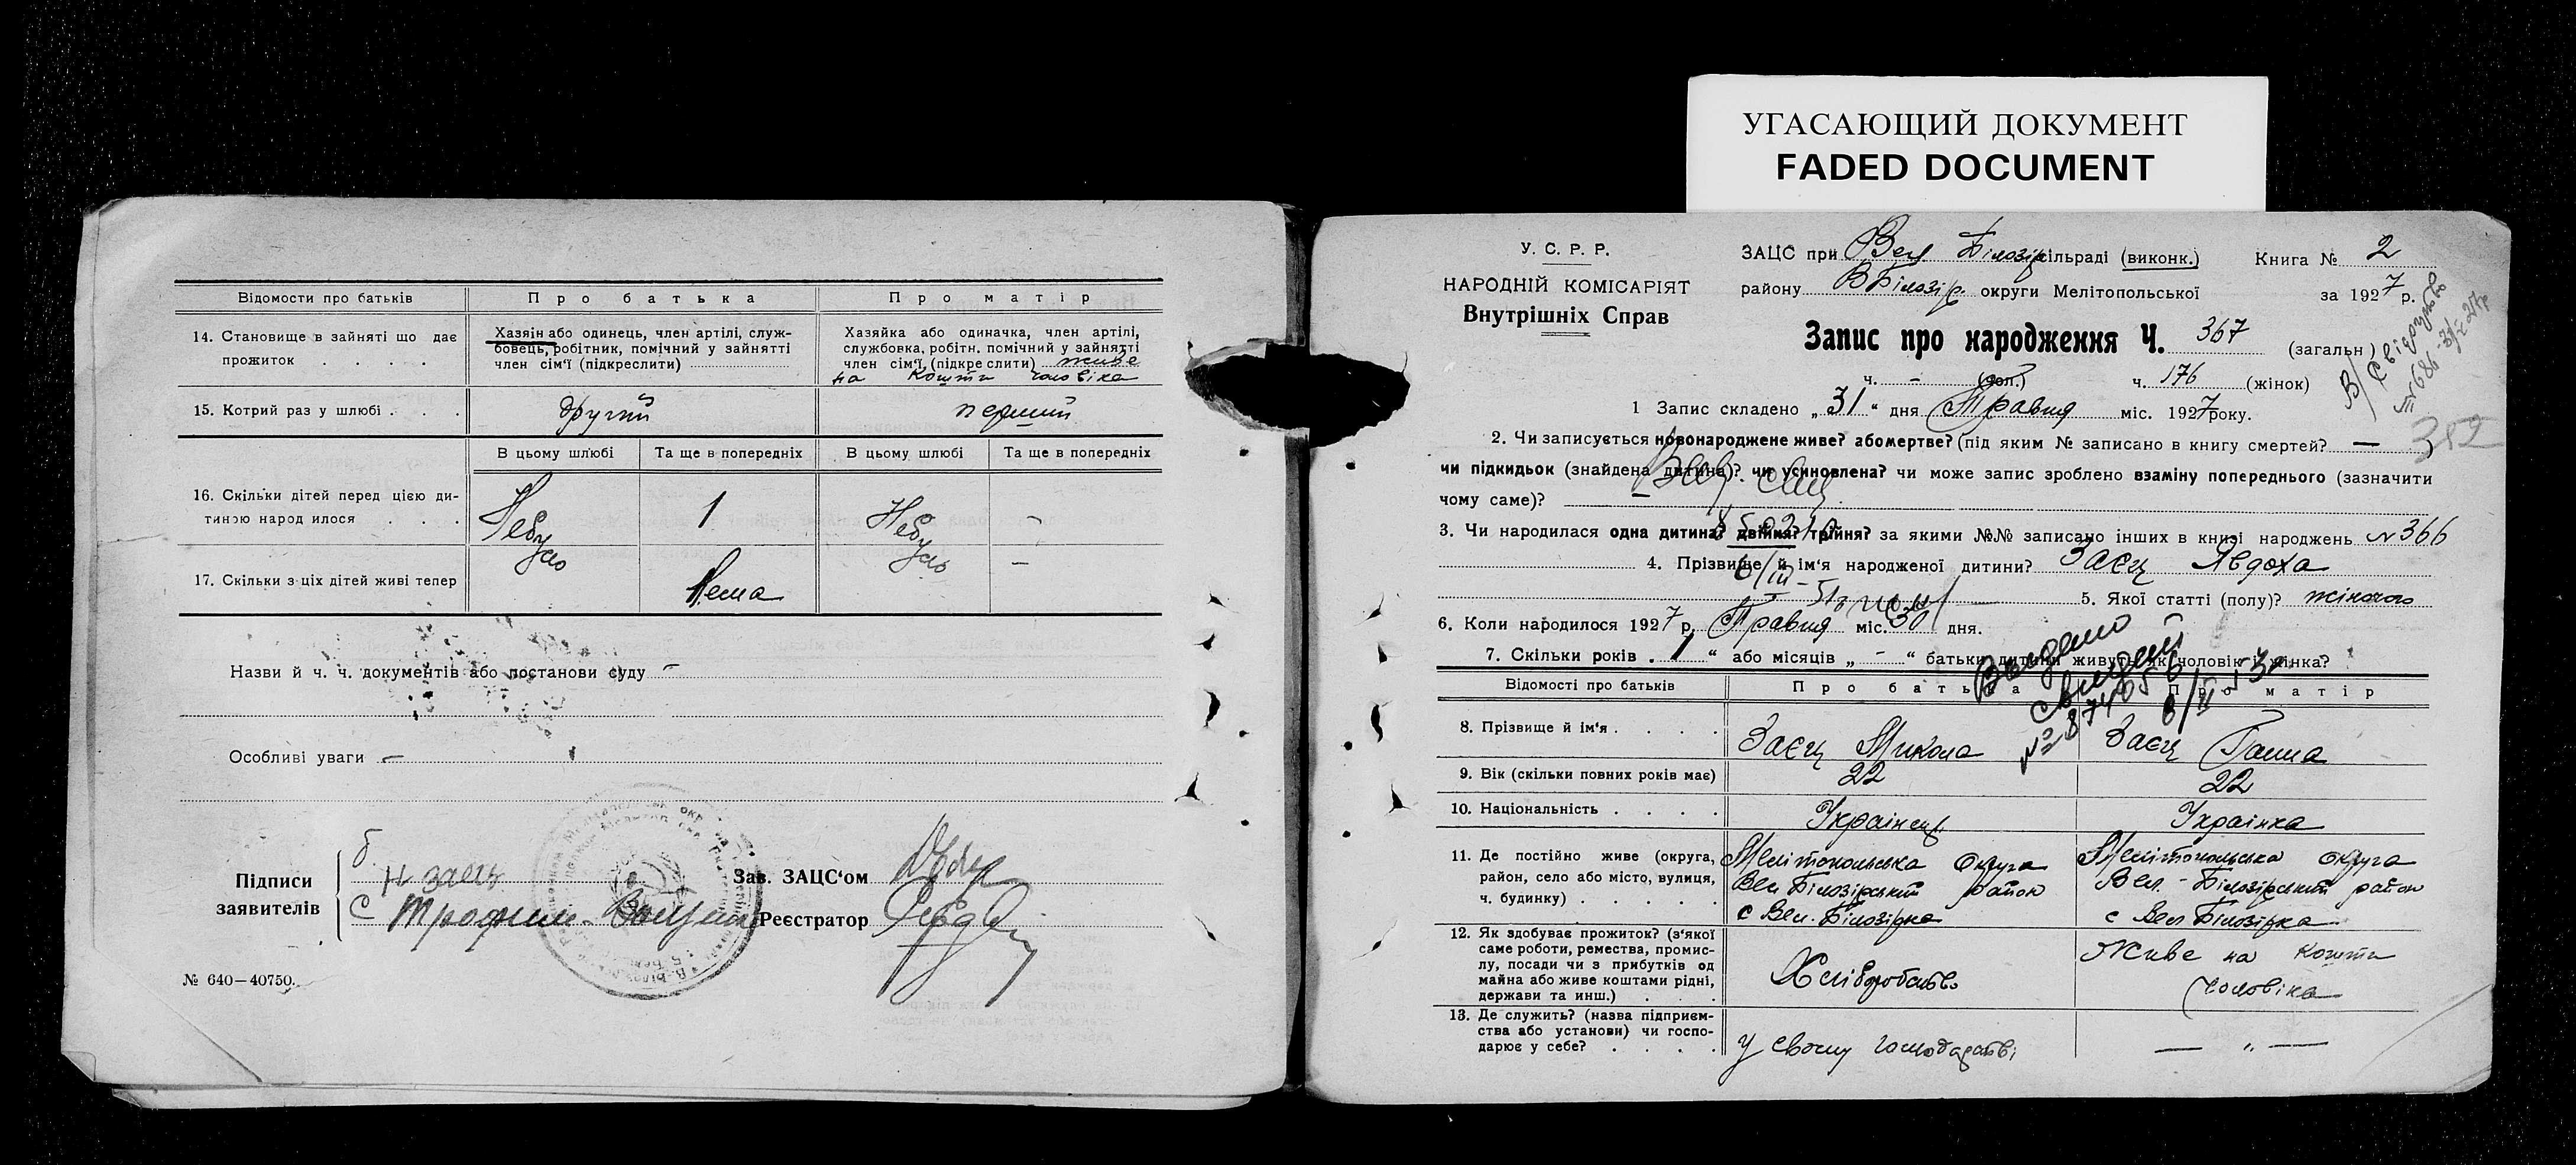 УГАСАЮЩИЙ ДОКУМЕНТ
FADED DOCUMENT
Відомости про батьків
Про батька
Про матір
14. Становище в зайняті що дає прожиток . . . .
Хазяін або одинець, член артілі, служ-
бовець, робітник, помічний у зайнятті
член сім'ї (підкреслити)
Хазяйка або одиначка, член артілі,
службовка, робітн. помічний у зайнятті
член сім'ї, (підкре слити) живе
на кошти чоловіка
15. Котрий раз у шлюбі . . .
другий
перший
В цьому шлюбі
Та ще в попередніх
В цьому шлюбі
Та ще в попередніх
16. Скільки дітей перед цією ди-
тиною народ илося . . .
Небуло
1
Небуло
–
17. Скільки з ціх дітей живі тепер
Нема
–
Назви й ч. ч. документів або постанови суду –
Особливі уваги –
Підписи
заявителів
б.
Н заець
с Трофим
Зав. ЗАЦС'ом
Реєстратор
№ 640—40750.
У. С. Р. Р.
НАРОДНІЙ КОМІСАРІЯТ
Внутрішніх Справ
ЗАЦС при Вел Білозір сільраді (виконк.)
Книга № 2
району ВБілозір. округи Мелітопольської
за 1927 р.
Запис про народження Ч. 367 (загальн)
ч. – (чол.) ч. 176 (жінок)
В/Свідоцтво
№ 686
382
1 Запис складено „31“ дня Травня міс. 1927 року.
2. Чи записується новонароджене живе? або мертве? (під яким № записано в книгу смертей? —
чи підкидьок (знайдена дитина)? чи усиновлена? чи може запис зроблено взаміну попереднього (зазначити
чому саме)?
3. Чи народилася одна дитина? двійня? трійня? за якими №№ записано інших в книзі народжень №366
4. Прізвище й ім'я народженої дитини? Заєць Явдоха
5. Якої статті (полу)? жіночого
6. Коли народилося 1927 р. Травня міс. 30 дня.
7. Скільки років . 1 “ або місяців „ – “ батьки дитини живуть як чоловік і жінка?
Видано
Відомості про батьків
Про батька
Про матір
8. Прізвище й ім'я . . . .
Заєць Микола
Заєць Ганна
9. Вік (скільки повних років має)
22
22
10. Національність . . . .
Українець
Українка
11. Де постійно живе (округа,
район, село або місто, вулиця,
ч. будинку) . . . . .
Мелітопольська округа
Вел Білозірський район
с Вел. Білозірка
Мелітопольська округа
Вел. - Білозірський район
с Вел Білозірка
12. Як здобуває прожиток? (з'якої
саме роботи, ремества, промис-
лу, посади чи з прибутків од
майна або живе коштами рідні,
держави та инш.) . . .
Хліборобство
Живе на кошти
чоловіка
13. Де служить? (назва підприєм-
ства або установи) чи госпо-
дарює у себе? . . . .
У своему господарстві
— „ —